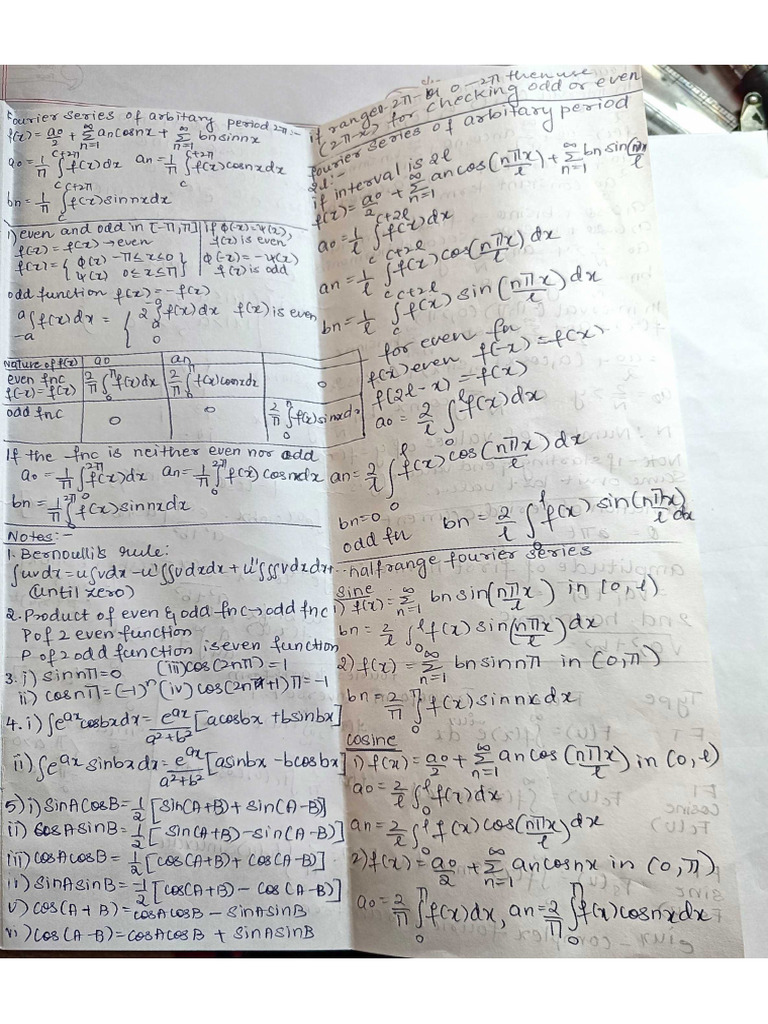 Fourier series of arbitary period 2π:-
f(x) = a0/2 + ∞Σn=1 an cosnx + ∞Σn=1 bn sinnx
a0 = 1/π ∫c^c+2π f(x)dx an = 1/π ∫c^c+2π f(x)cosnxdx
bn = 1/π ∫c^c+2π f(x)sinnxdx
1) even and odd in [-π,π] if ϕ(-x) = ψ(x),
f(-x) = f(x) → even f(x) is even
f(x) = { ϕ(x) -π≤x≤0 } ϕ(-x) = -ψ(x)
ψ(x) 0≤x≤π f(x) is odd
odd function f(x) = -f(x)
∫-a^a f(x)dx = { 2∫0^a f(x)dx f(x) is even
0
Nature of f(x) a0 an
even fnc 2/π ∫0^π f(x)dx 2/π ∫0^π f(x)cosnxdx 0
f(-x) = f(x)
odd fnc 0 0 2/π ∫0^π f(x)sinnxdx
If the fnc is neither even nor odd
a0 = 1/π ∫0^2π f(x)dx an = 1/π ∫0^2π f(x)cosnxdx
bn = 1/π ∫0^2π f(x)sinnxdx
Notes:-
1. Bernoulli's rule:
∫uvdx = u∫vdx - u'∫∫vdxdx + u''∫∫∫vdxdx+...
(until zero)
2. Product of even & odd fnc → odd fnc
P of 2 even function
P of 2 odd function is even function
3. i) sinnπ = 0 (iii) cos(2nπ) = 1
ii) cosnπ = (-1)^n (iv) cos(2n+1)π = -1
4. i) ∫e^ax cosbxdx = e^ax/a²+b² [acosbx + bsinbx]
ii) ∫e^ax sinbxdx = e^ax/a²+b² [asinbx - bcosbx]
5) i) sinAcosB = 1/2 [sin(A+B) + sin(A-B)]
ii) cosAsinB = 1/2 [sin(A+B) - sin(A-B)]
iii) cosAcosB = 1/2 [cos(A+B) + cos(A-B)]
iv) sinAsinB = -1/2 [cos(A+B) - cos(A-B)]
v) cos(A+B) = cosAcosB - sinAsinB
vi) cos(A-B) = cosAcosB + sinAsinB
if range 0-2π 0-2π then use
(2π-x) for checking odd or even
Fourier series of arbitary period
2l:-
if interval is 2l
f(x) = a0/2 + ∞Σn=1 an cos(nπx/l) + ∞Σn=1 bn sin(nπx/l
a0 = 1/l ∫c^c+2l f(x)dx
an = 1/l ∫c^c+2l f(x)cos(nπx/l)dx
bn = 1/l ∫c^c+2l f(x)sin(nπx/l)dx
for even fn
f(x) even f(-x) = f(x)
f(2l-x) = f(x)
a0 = 2/l ∫0^l f(x)dx
an = 2/l ∫0^l f(x)cos(nπx/l)dx
bn = 0
odd fn bn = 2/l ∫0^l f(x)sin(nπx/l)dx
halfrange fourier series
sine
1) f(x) = ∞Σn=1 bn sin(nπx/l) in (0,l)
bn = 2/l ∫0^l f(x)sin(nπx/l)dx
2) f(x) = ∞Σn=1 bn sinnπ in (0,π)
bn = 2/π ∫0^π f(x)sinnxdx
cosine
1) f(x) = a0/2 + ∞Σn=1 an cos(nπx/l) in (0,l)
a0 = 2/l ∫0^l f(x)dx
an = 2/l ∫0^l f(x)cos(nπx/l)dx
2) f(x) = a0/2 + ∞Σn=1 an cosnx in (0,π)
a0 = 2/π ∫0^π f(x)dx, an = 2/π ∫0^π f(x)cosnxdx